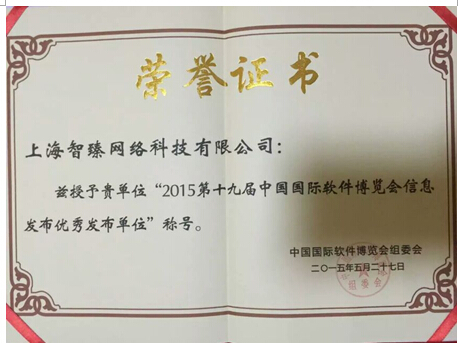 荣誉证书
上海智臻网络科技有限公司：
兹授予贵单位“2015第十九届中国国际软件博览会信息
发布优秀发布单位”称号。
中国国际软件博览会组委会
二〇一五年五月二十七日
组委会